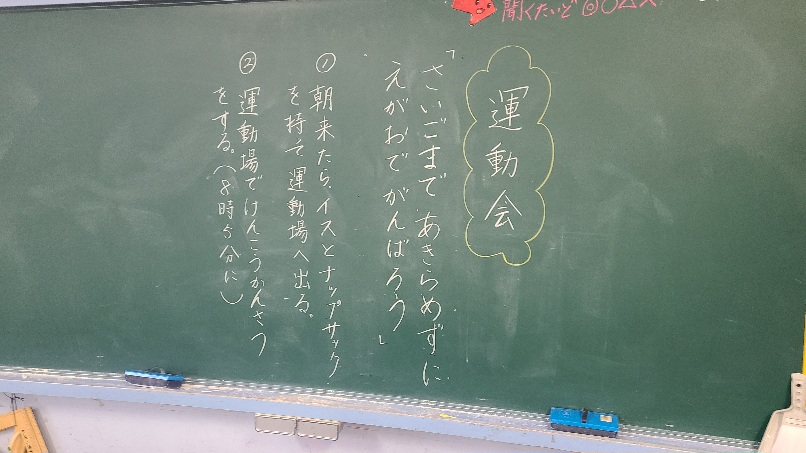 聞くたいど◎○△×
運動会
「さいごまであきらめずに
えがおでがんばろう」
① 朝来たら、イスとナップサック
を持って、運動場へ出る。
② 運動場でけんこうかんさつ
をする。(8時5分に)